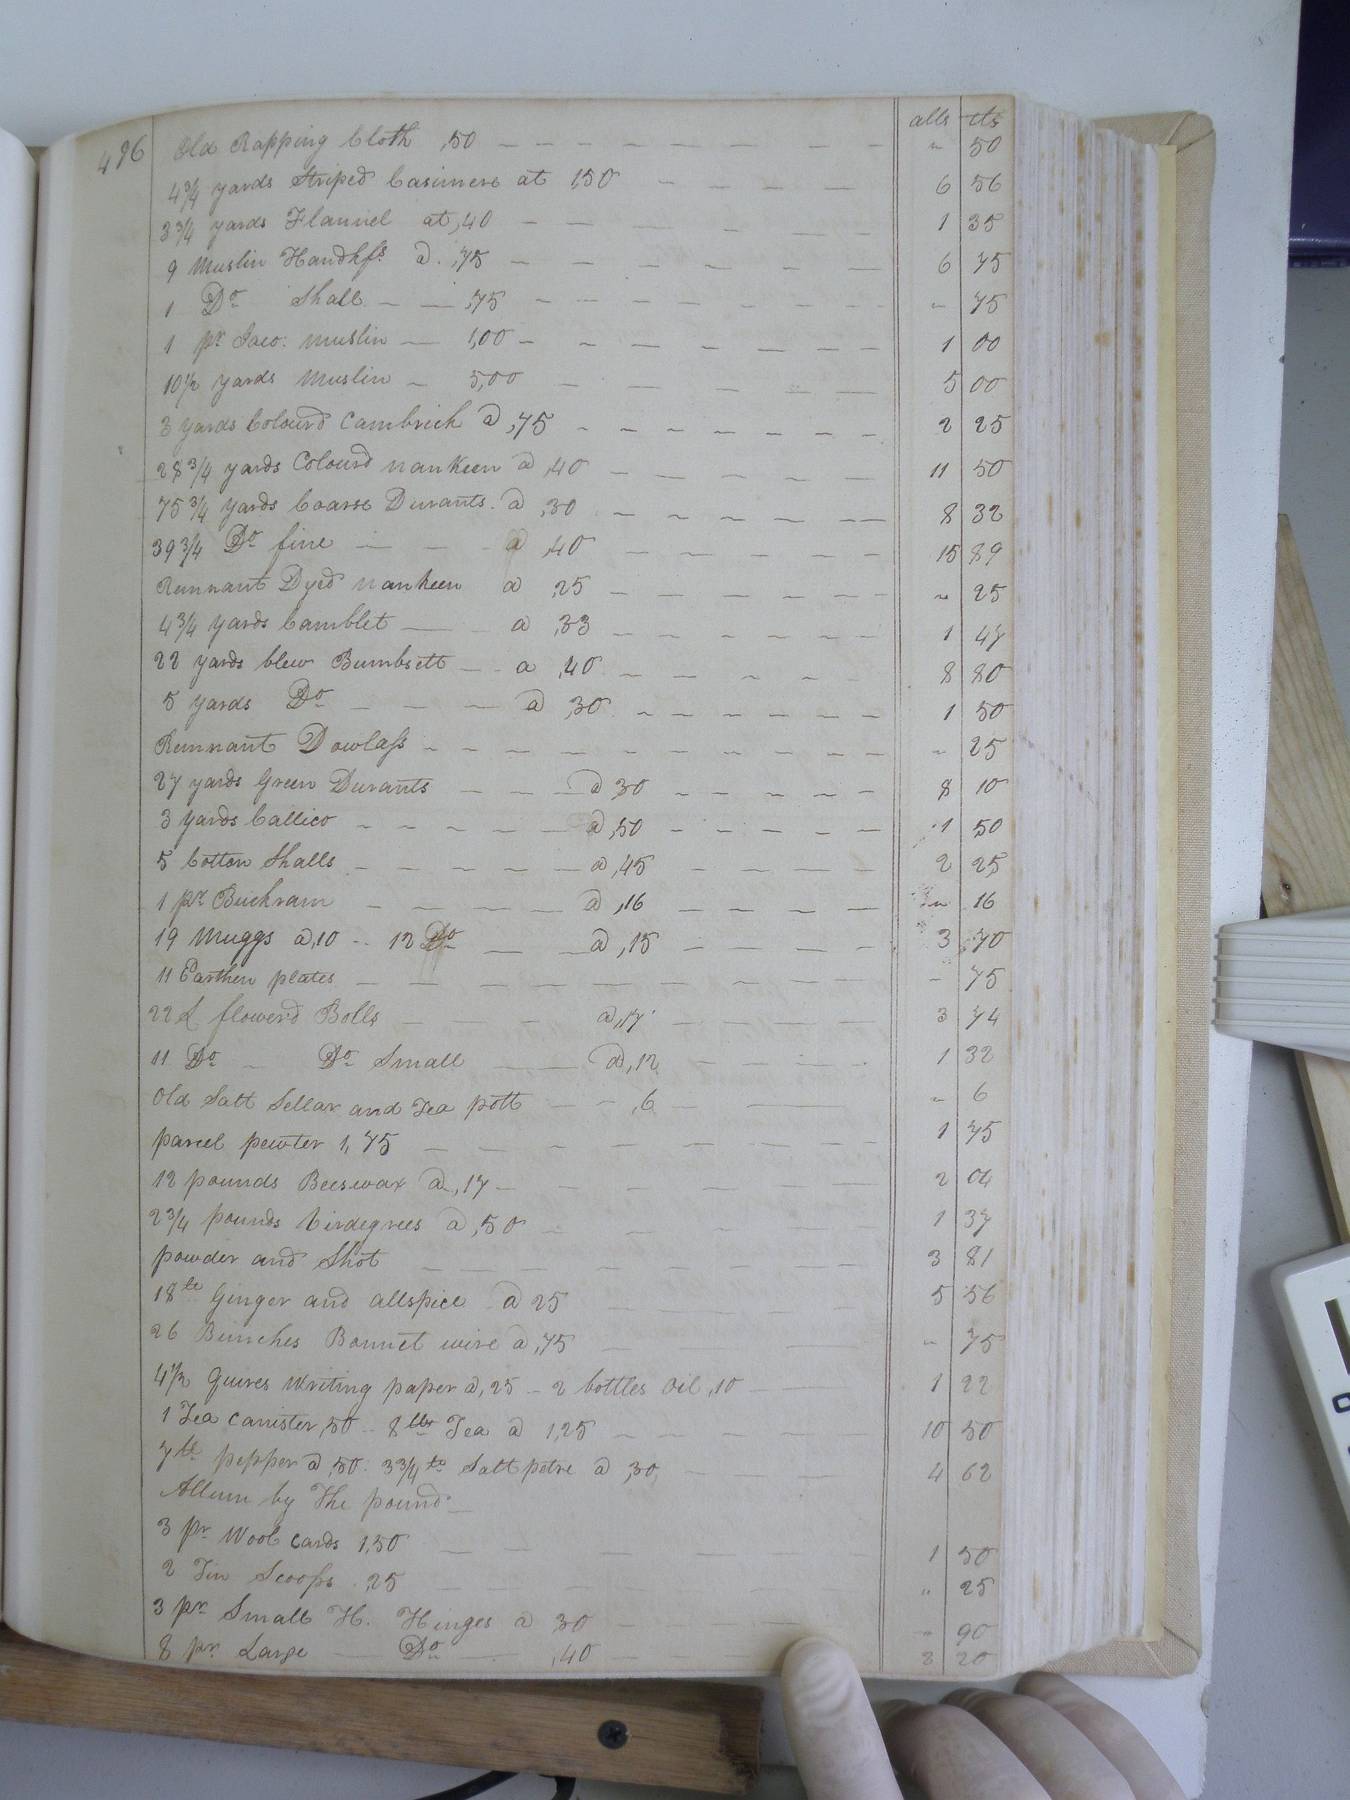 496
dlls cts
Old Rapping Cloth ,50 " 50
4¾ yards Striped Casimere at 1,50 6 56
3¾ yards Flannel at ,40 1 35
9 Muslin Handkfs. a ,75 6 75
1 Do Shall ,75 " 75
1 pr Jaco: muslin 1,00 1 00
10½ yards Muslin 5,00 5 00
3 yards Colourd Cambrick a ,75 2 25
28¾ yards Colourd nankeen a ,40 11 50
75¾ yards Coarse Durants a ,30 8 32
39¾ Do fine a ,40 15 89
Remnant Dyed nankeen a ,25 " 25
4¾ yards Camblet a ,33 1 47
22 yards blew Bumbsett a ,40 8 80
5 yards Do a ,30 1 50
Remnant Dowlass " 25
27 yards Green Durants a 30 8 10
3 yards Callico a ,50 1 50
5 Cotton Shalls a ,45 2 25
1 pr Buckram a ,16 " 16
19 Muggs a ,10 12 Do a ,15 3 70
11 Earthen plates " 75
22 L flower'd Bolls a ,17 3 74
11 Do Do Small a ,12 1 32
Old Salt Sellar and Tea pott ,6 " 6
parcel pewter 1,75 1 75
12 pounds Beeswax a ,17 2 04
2¾ pounds Virdegrees a ,50 1 37
powder and Shot 3 81
18 lb Ginger and allspice a 25 5 56
26 Bunches Bonnet wire a ,75 " 75
4½ Quires Writing paper a ,25 2 bottles Oil ,10 1 22
1 Tea Canister ,50 8 lbs Tea a 1,25 10 50
7 lb pepper a ,50. 3¾ lb Salt petre a ,30, 4 62
Allum by The pound
3 pr Wool Cards 1,50 1 50
2 Tin Scoops ,25 " 25
3 pr Small H. Hinges a 30 " 90
8 pr Large Do ,40 3 20